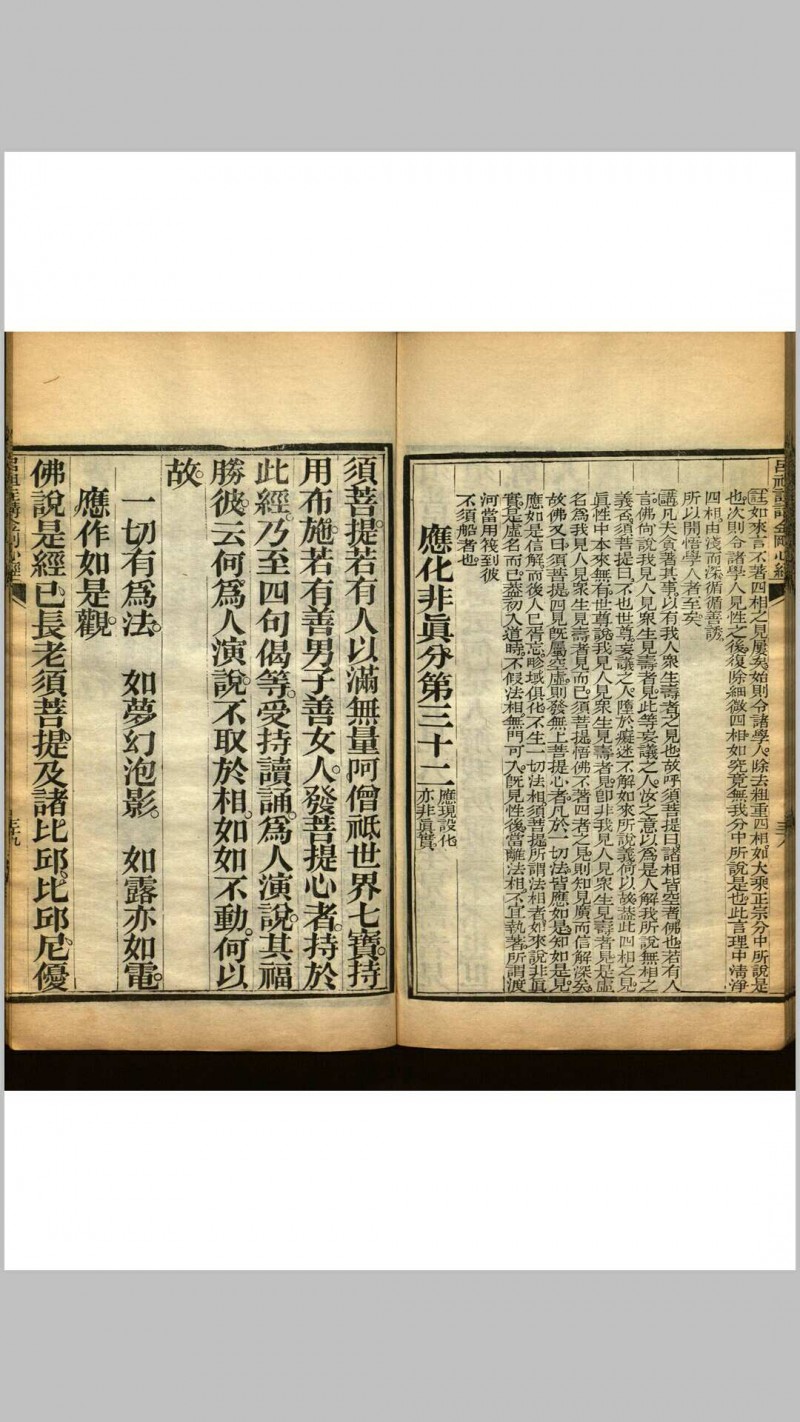 註如來言不著四相之見屢矣始則令諸學人除去粗重四相如大乘正宗分中所說是
也次則令諸學人見性之後復除細微四相如究竟無我分中所說是也此言理中清淨
四相由淺而深循循善誘
所以開悟學人者至矣
講凡夫貪著其事以有我人衆生壽者之見也故呼須菩提曰諸相皆空者佛也若有人
言佛尙說我見人見衆生見壽者見此等妄議之人汝之意以爲是人解我所說無相之
義否須菩提曰不也世尊妄議之人墮於癡迷不解如來所說義何以故蓋此四相之見
眞性中本來無有世尊說我見人見衆生見壽者見卽非我見人見衆生見壽者見是虛
名爲我見人見衆生見壽者見而已須菩提悟佛不著四者之見則知見廣而信解深矣
故佛又曰須菩提四見旣屬空虛則發無上菩提心者凡於一切法皆應如是知如是見
應如是信解而後人已胥忘畛域俱化不生一切法相須菩提所謂法相者如來說非眞
實是虛名而已蓋初入道時不假法相無門可入旣見性後當離法相不宜執著所謂渡
河當用筏到彼
不須船者也
應化非眞分第三十二
應現設化
亦非眞實
須菩提若有人以滿無量阿僧祇世界七寶持
用布施若有善男子善女人發菩提心者持於
此經乃至四句偈等受持讀誦爲人演說其福
勝彼云何爲人演說不取於相如如不動何以
故
一切有爲法。 如夢幻泡影。 如露亦如電。
應作如是觀
佛說是經已長老須菩提及諸比邱比邱尼優
三十九